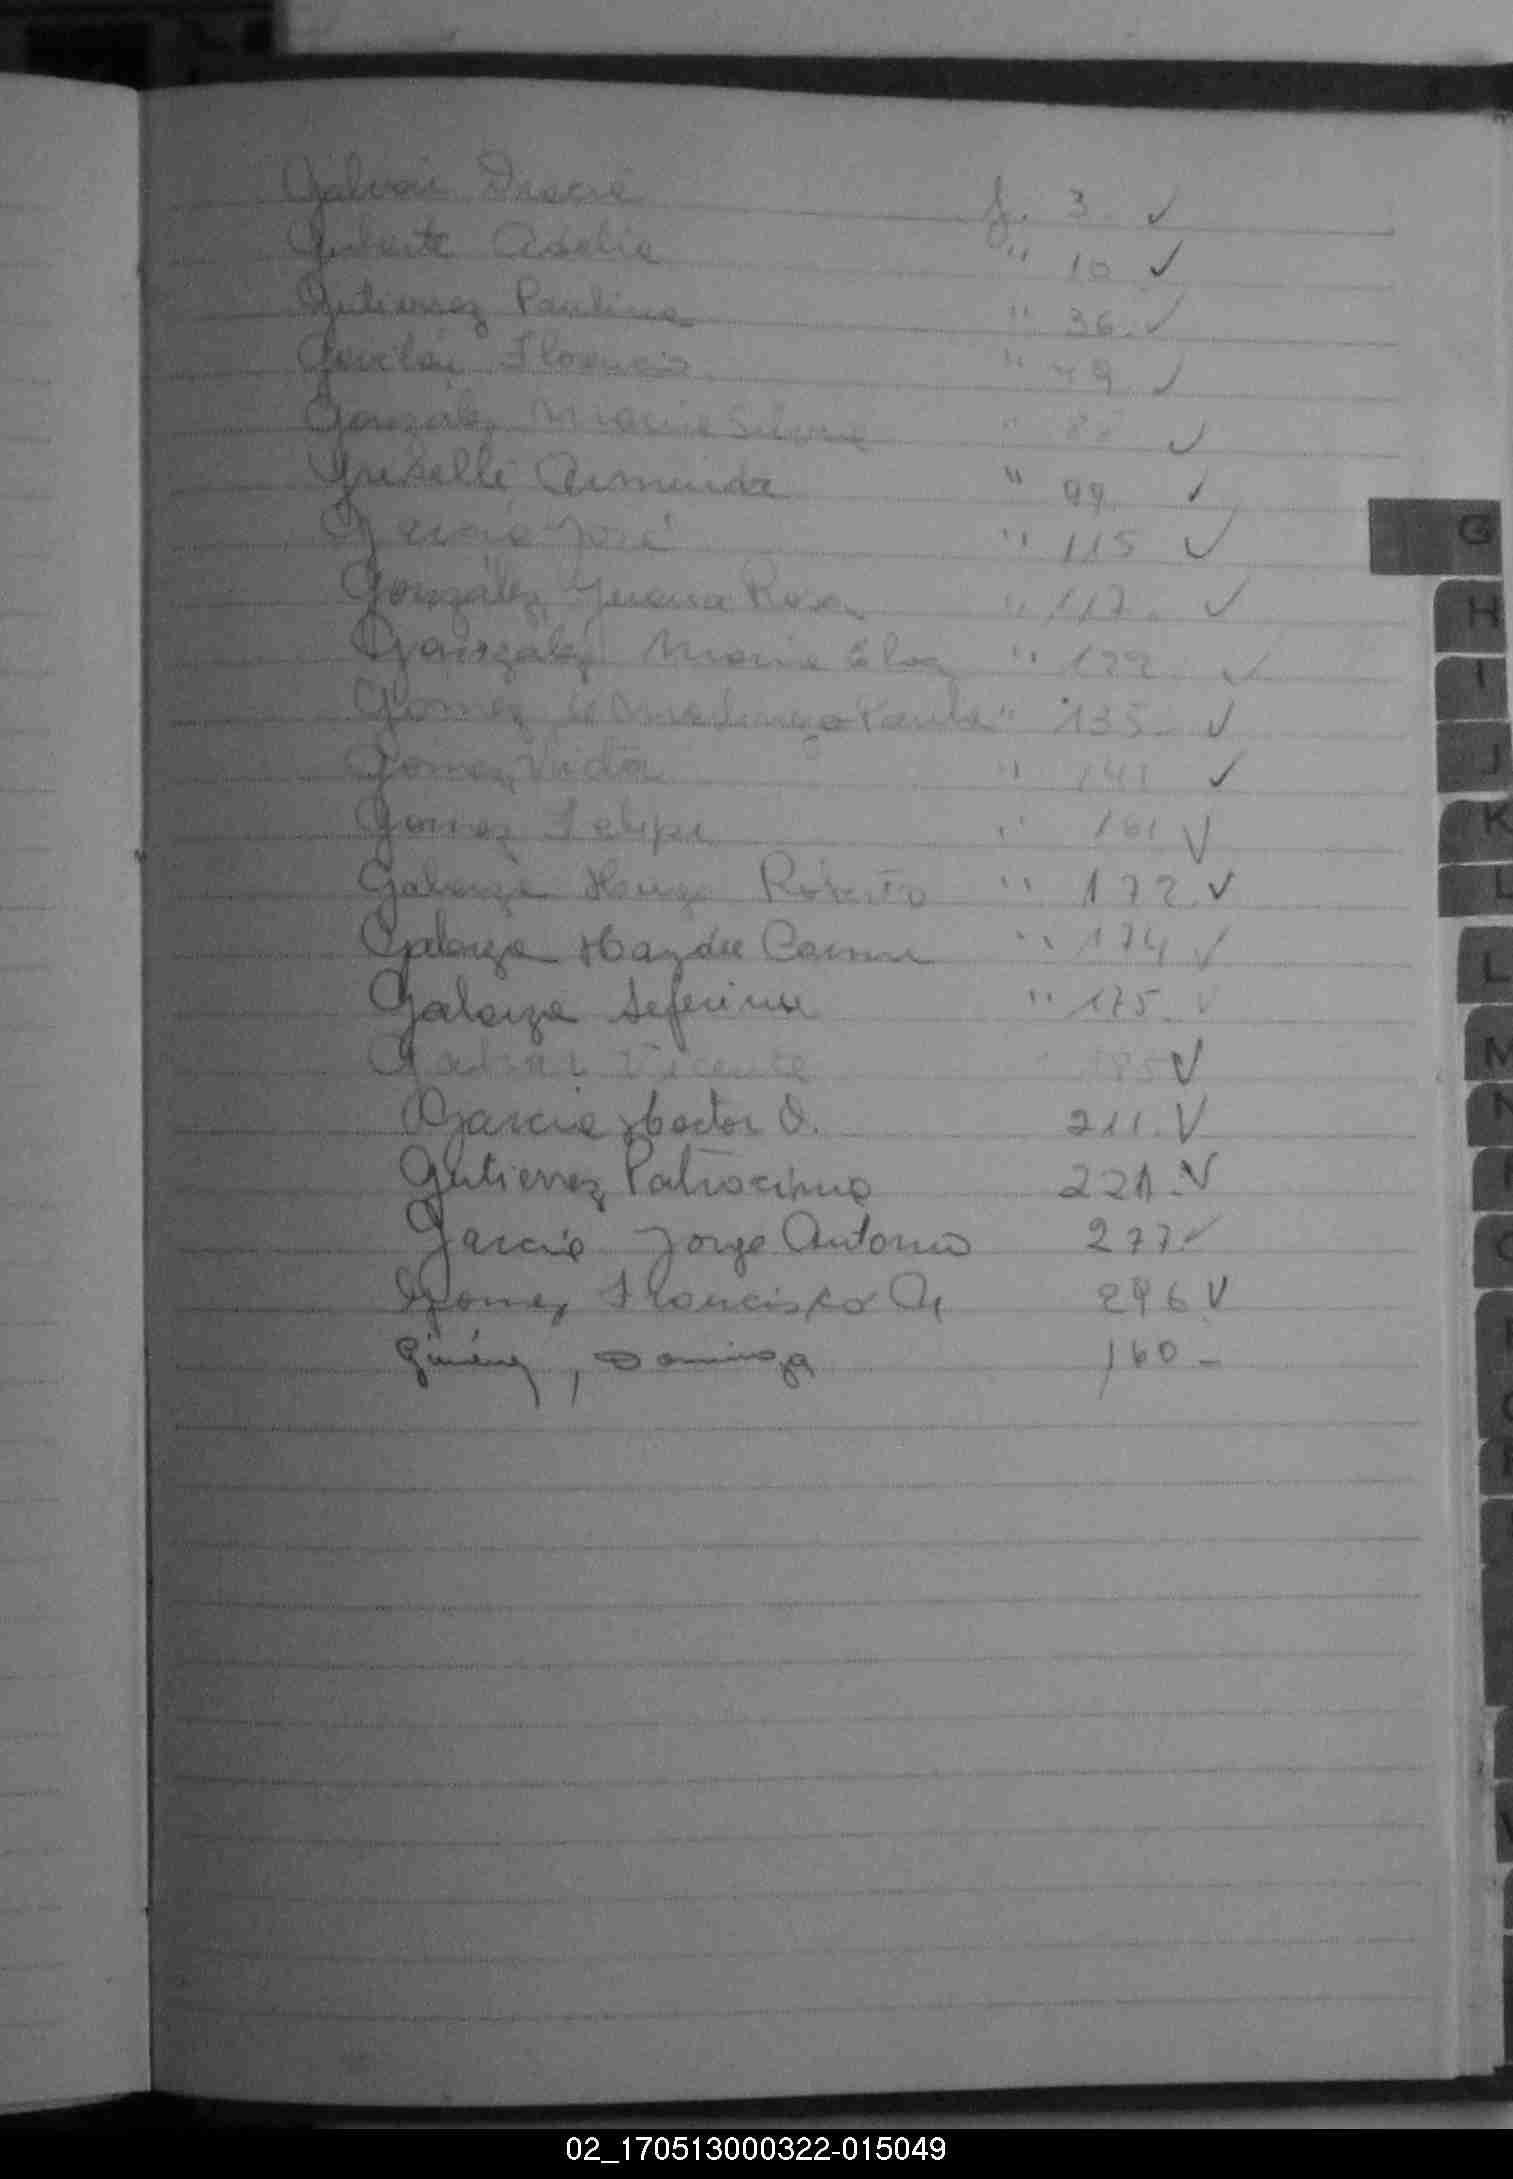 Galván f. 3 ✓
Adelia " 10 ✓
Gutierrez Paulina " 36 ✓
Gavilán Florencia " 49 ✓
González Maria Silvia " ✓
Arminda " 99 ✓
Garcia José " 115 ✓
González Juana Rosa " 117 ✓
González Maria Elva " 122 ✓
Gomez de Paula " 135 ✓
Gomez Victor " 141 ✓
Gomez Felipe " 161 ✓
Galarza Hugo Roberto " 172 ✓
Galarza Haydee Carmen " 174 ✓
Galarza Seferina " 175 ✓
Vicente 195 ✓
Garcia Hector O. 211 ✓
Gutierrez Patrocinio 221 ✓
Garcia Jorge Antonio 277 ✓
Gomez Francisco A. 296 ✓
Giménez, Dominga 160 -
G
H
I
J
K
L
L
M
N
02_170513000322-015049